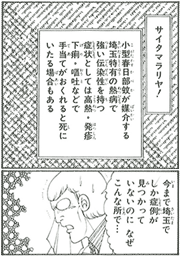 サイタマラリヤ!
小型春日部蚊が媒介する
埼玉特有の熱病で
強い伝染性を持つ
症状としては高熱・発疹
下痢・嘔吐などで
手当てがおくれると死に
いたる場合もある
今まで埼玉で
しか症例が
見つかって
いないのになぜ
こんな所で…